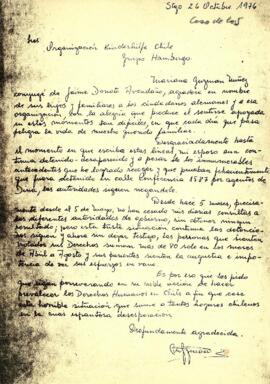 Stgo 26 Octubre, 1976
Caso de los 5
Organización Kinderhilfe Chile
Grupo Hamburgo
Mariana Guzmán Núñez
conyuge de Jaime Donato Avendaño, agradece en nombre de
sus hijos y familiares a los sindicatos alemanes y a esa
organización con la alegría que produce el sentirse apoyada
en estos momentos tan difíciles, en que cada día que pasa
peligra la vida de nuestro querido familiar.
Desgraciadamente hasta
el momento en que escribo estas líneas, mi esposo aún
continua detenido-desaparecido y a pesar de los innumerables
antecedentes que he logrado recoger, y que prueban fehacientemente
que fuera detenido en calle Conferencia 1587 por agentes de
Dina, las autoridades siguen negándolo.
Desde hace 5 meses, precisa-
mente desde el 5 de mayo, no han cesado mis diarias consultas a
las diferentes autoridades de gobierno, sin obtener ningún
resultado; pero esta triste situación continua, las detencio-
nes siguen y ahora sin dejar testigo, las personas que sienten
violados sus Derechos suman mas de 90 solo en los meses
de Abril a Agosto y sus parientes sienten la angustia e impo-
tencia de ver sus esfuerzos en vano.
Es por eso que les pido
que sigan perseverando en su noble accion de hacer
prevalecer los Derechos Humanos en Chile a fin que cese
esta horrible situación que sume a tantos hogares chilenos
en la mas espantosa desesperación.
Profundamente agradecida.